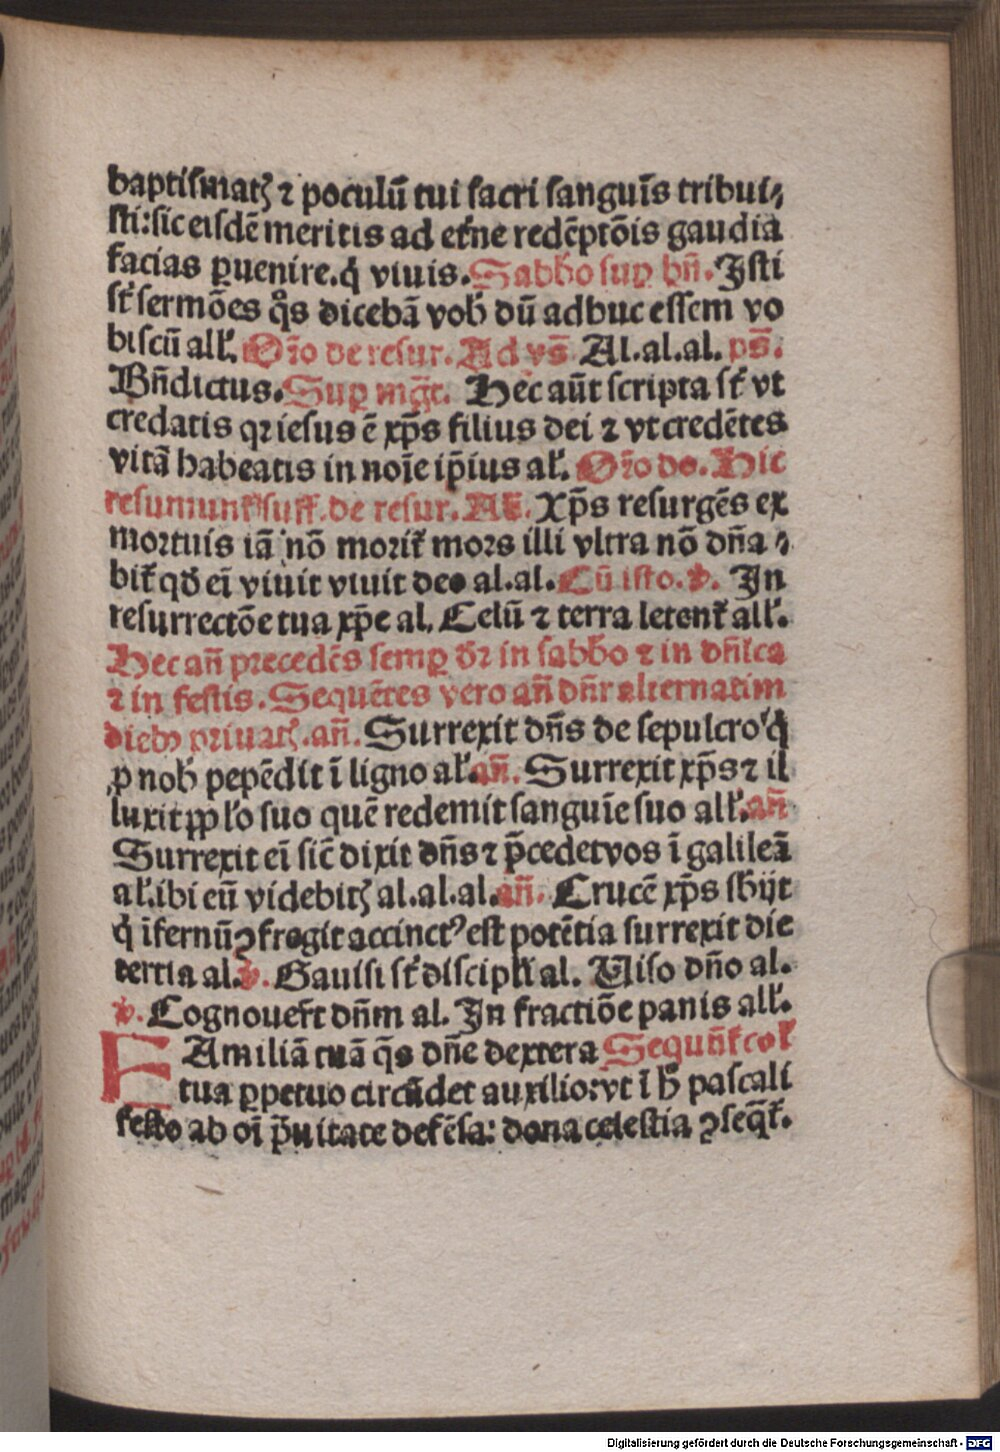 baptismatꝫ ⁊ poculū tui sacri sanguīs tribui⸗
sti: sic eisdē meritis ad eťne redēptōis gaudia
facias ꝑuenire. q̇ viuis. Sabb̄o suꝑ bn̄. Isti
sť sermōes qͦs dicebā vob̄ dū adhuc essem vo
biscū all'. Or̄o de resur. Ad vs̄. Al. al. al. ps̄.
Bn̄dictus. Suꝑ mḡt. Hec aūt scripta sť vt
credatis qꝛ iesus ē xp̄s filius dei ⁊ vt credētes
vitā habeatis in noīe ip̄ius al'. Or̄o do. Hic
resumunť suff. de resur. Añ. Xp̄s resurgēs ex
mortuis iā nō moriť mors illi vltra nō dn̄a⸗
biť qd̄ eī viuit viuit deo al. al. Cū isto. v̇. In
resurrectōe tua xp̄e al. Celū ⁊ terra letenť all'.
Hec an̄ precedēs semꝑ dr̄ in sabb̄o ⁊ in dn̄ica
⁊ in festis. Sequētes vero an̄ dn̄r alternatim
diebꝰ priuatꝫ. an̄. Surrexit dn̄s de sepulcro q̇
ꝓ nob̄ pepēdit ī ligno al'. an̄. Surrexit xp̄s ⁊ il
luxit pp̄lo suo quē redemit sanguīe suo all'. an̄
Surrexit eī sic̄ dixit dn̄s ⁊ p̄cedet vos ī galileā
al'. ibi eū videbitꝫ al. al. al. an̄. Crucē xp̄s sbijt
q̇ īfernū ꝯfregit accinctꝰ est potētia surrexit die
tertia al. v̇. Gauisi sť discipli al. Viso dn̄o al.
v̇. Cognouer̄t dn̄m al. In fractiōe panis all'.
FAmiliā tuā q̄s dn̄e dextera Sequn̄ť col'
tua ꝑpetuo circūdet auxilio: vt ī h̄ pascali
festo ab oī p̄uitate defēsa: dona celestia ꝯseq̄ť.
Digitalisierung gefördert durch die Deutsche Forschungsgemeinschaft - DFG